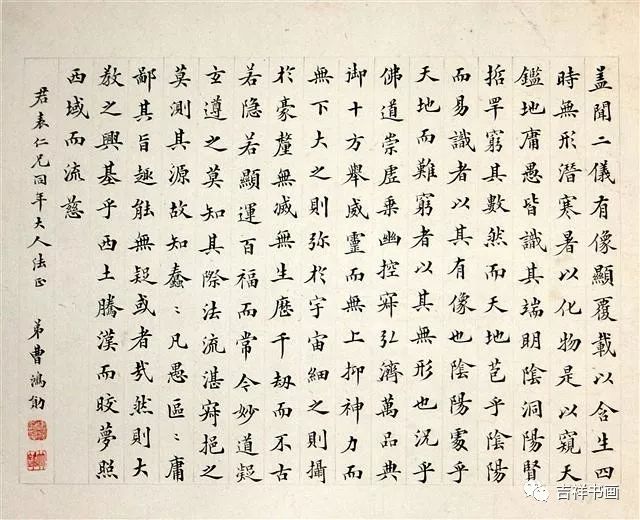 蓋聞二儀有像顯覆載以含生四
時無形潛寒暑以化物是以窺天
鑑地庸愚皆識其端明陰洞陽賢
哲罕窮其數然而天地苞乎陰陽
而易識者以其有像也陰陽處乎
天地而難窮者以其無形也況乎
佛道崇虛乘幽控寂弘濟萬品典
御十方舉威靈而無上抑神力而
無下大之則弥於宇宙細之則攝
於豪釐無滅無生歷千劫而不古
若隐若顯運百福而常今妙道凝
玄遵之莫知其際法流湛寂挹之
莫測其源故知蠢〻凡愚區〻庸
鄙其旨趣能無疑或者哉然則大
教之興基乎西土騰漢而皎夢照
西域而流慈
君表仁兄同年大人法正
弟曹鴻勛
吉祥书画